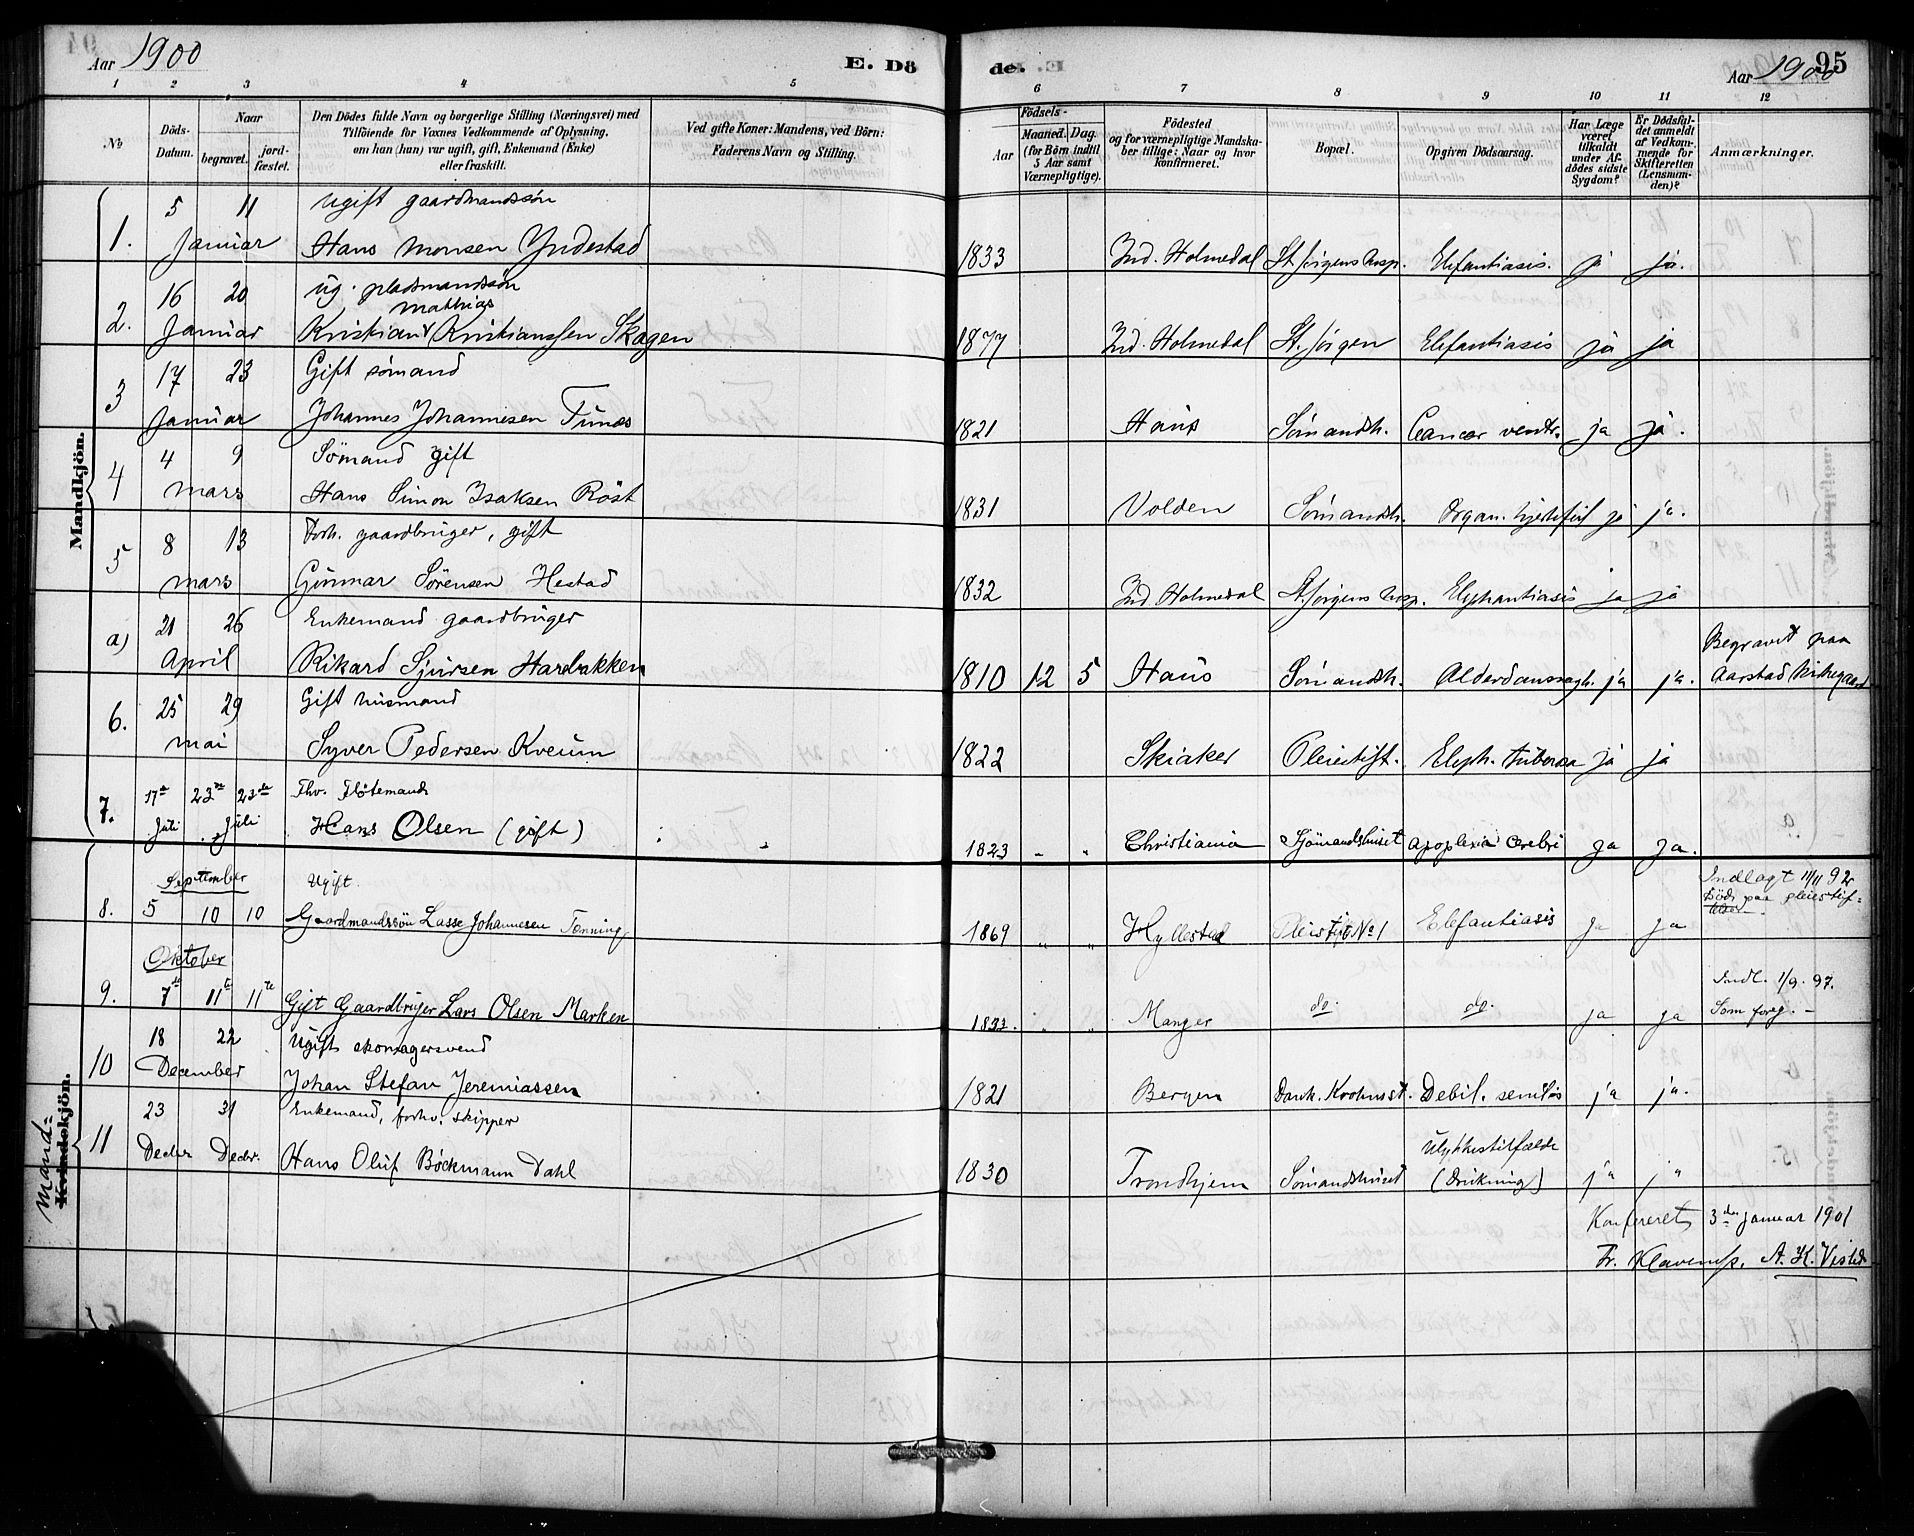 Aar 1900 E. Dö
de. Aar 1900 95
1 2 3 4 5
6 7 8 9 10 11 12
№
Döds-
Datum.
Naar
begravet.
jord-
fæstet.
Den Dödes fulde Navn og borgerlige Stilling (Næringsvei) med
Tilföiende for Voxnes Vedkommende af Oplysning,
om han (hun) var ugift, gift, Enkemand (Enke)
eller fraskilt.
Ved gifte Koner: Mandens, ved Börn:
Faderens Navn og Stilling.
Födsels-
Aar
Maaned. Dag.
(for Börn indtil
5 Aar samt
Værnepligtige).
Födested
og for værnepligtige Mandska-
ber tillige: Naar og hvor
konfirmeret.
Bopæl.
Opgiven Dödsaarsag.
Har Læge
været
tilkaldt
under Af-
dödes sidste
Sygdom?
Er Dödsfal-
det anmeldt
af Vedkom-
mende for
Skifteretten
(Lensman-
den)?
Anmærkninger.
Mandkjön.
5 11 Ugift gaardmandssøn
1. Januar Hans Monsen Yndestad 1833 Ind. Holmedal St. Jørgens hosp. Elefantiasis. ja ja.
16 20 ug. pladsmandssøn
Mathias
2. Januar Kristian Kristianssen Skagen 1877 Ind. Holmedal St. Jørgen Elefantiasis ja ja
17 23 Gift sømand
3 Januar Johannes Johannesen Tunæs 1821 Haus Sømandsh. Cancer ventr. ja ja.
4 9 Sømand gift
4 Mars Hans Simon Isaksen Röst 1831 Volden Sømandsh. Organ. hjertefeil ja ja.
8 13 Forh. gaardbruger, gift
5 Mars Gunnar Sørensen Hestad 1832 Ind. Holmedal St. Jørgens hosp. Elephantiasis ja ja
21 26 Enkemand gaardbruger Begravet paa
a) April Rikard Sjursen Hardbakken 1810 12 5 Haus Sømandsh. Alderdomssvagh. ja ja. Aarstad Kirkegaard
25 29 Gift husmand
6. Mai Syver Pedersen Kveum 1822 Skiaker Pleiestift. Eleph. tuberosa ja ja
17de 23de 23de Fhv. Flötemand
7. Juli Juli Hans Olsen (gift) 1823 " " Christiania Sjömandshuset Apoplexia Cerebri ja ja.
September Ugift. Indlagt 11/11 92
Död paa pleiestif-
8. 5 10 10 Gaardmandssön Lasse Johannesen Tenning 1869 " " Hyllestad Pleiestift № 1 Elefantiasis ja ja
Oktober Indl. 1/9. 97.
9. 7de 11te 11te Gift Gaardbruger Lars Olsen Marken " " Manger do. do. ja ja Som foreg. —
18 22 Ugift skomagersvend
10 December Johan Stefan Jeremiassen 1821 Bergen Danck. Krohnsst. Debil. senilis ja ja.
23 31 Enkemand, forhv. skipper Ulykkestilfælde
11 Decbr Decbr. Hans Oluf Böckmann Dahl 1830 Trondhjem Sømandshuset (Drukning) ja ja
Mand=
Kvindekjön.
Konfereret 3die Januar 1901
A. K. Visted